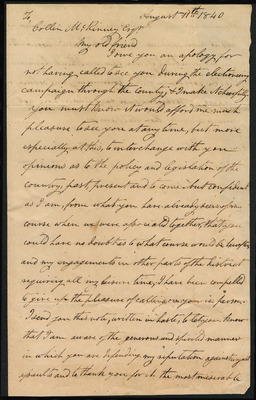 August 11th 1840
To,
Collin McKinney Esqr
My old friend
I owe you an apology, for
not having called to see you during the electioneering
campaign through the County, & I make it cheerfully.
You must know it would afford me much
pleasure to see you at any time, but more
especially, at this, to interchange with you
opinions as to the policy and legislation of the
country; past, present and to come. but confident
as I am, from what you have already seen of my
course when we were associated together, that you
could have no doubt as to what course would be
and my engagements in other parts of the
requiring all my leisure time, I have been compelled
to give up the pleasure of calling on you in person.
I send you this note, written in haste, to let you know
that I am aware of the generous and spirited manner
in which you are defending my reputation against
assaults and to thank you for it. the most miserable